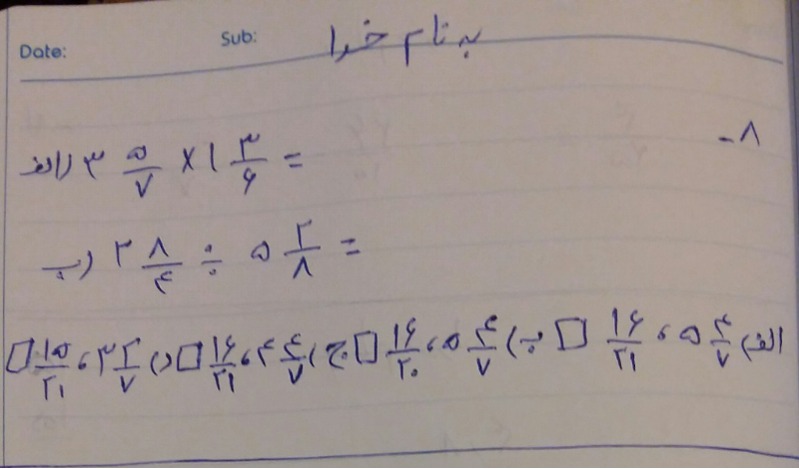 Date: Sub: به نام خدا
۸-
الف) ۳ ۵/۷ × ۱ ۳/۶ =
ب) ۲ ۸/۴ ÷ ۵ ۲/۸ =
الف) ۵ ۴/۷ ، ۱۶/۲۱ □ ب) ۵ ۴/۷ ، ۱۶/۲۰ □ ج) ۴ ۴/۷ ، ۱۶/۲۱ □ د) ۳ ۲/۷ ، ۱۵/۲۱ □